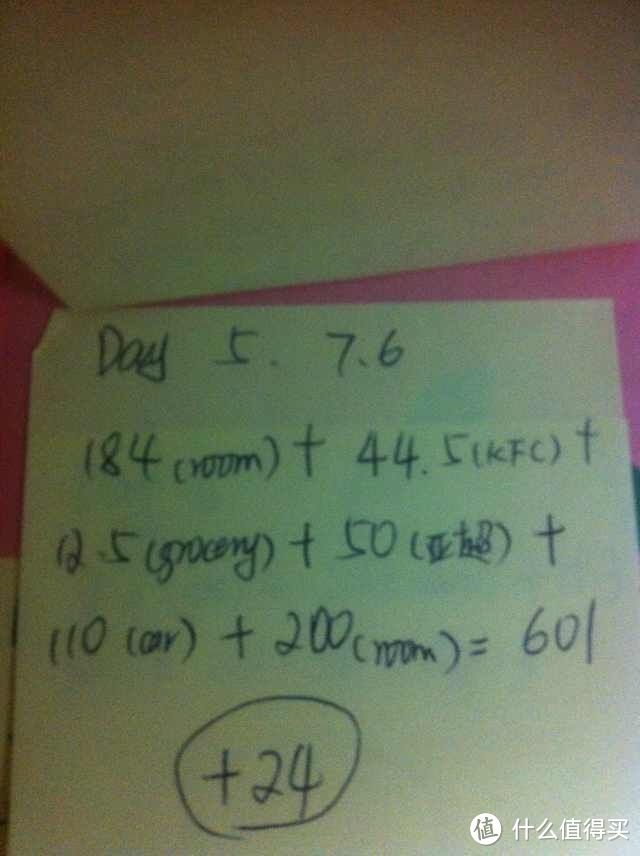 Day 5. 7.6
184 (room) + 44.5 (KFC) +
12.5 (grocery) + 50 (亚超) +
110 (car) + 200 (room) = 601
+24
值 什么值得买